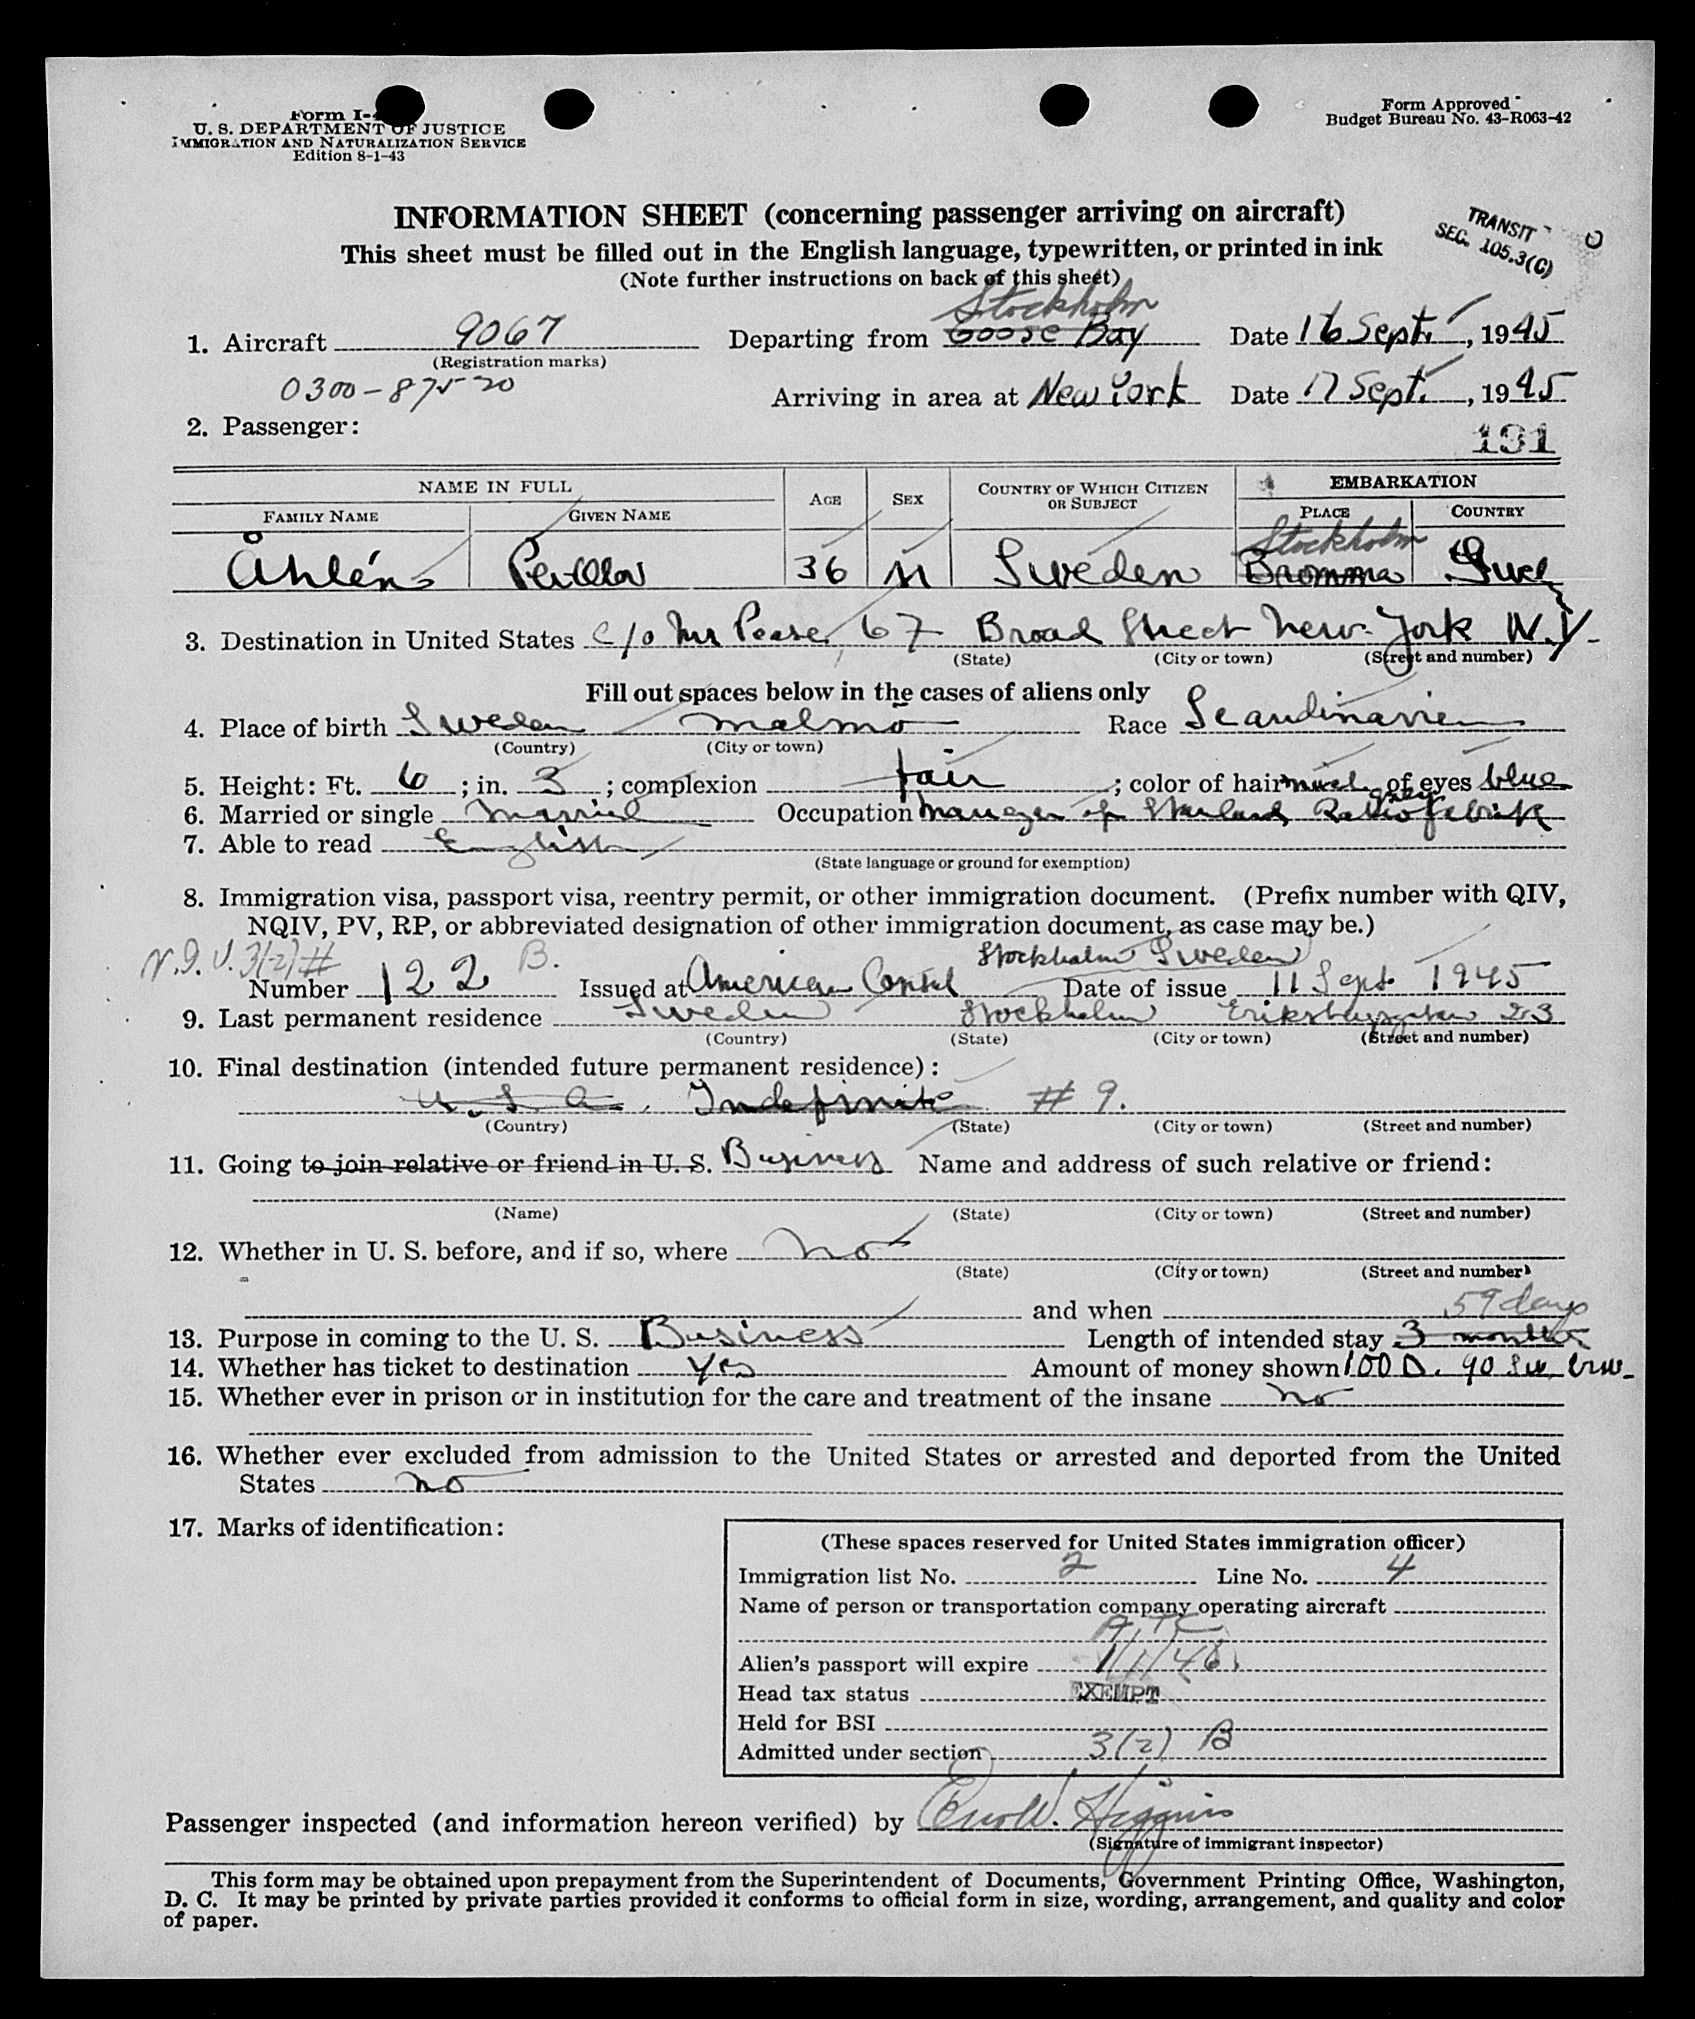 Form I-
U. S. DEPARTMENT OF JUSTICE
IMMIGRATION AND NATURALIZATION SERVICE
Edition 8-1-43
Form Approved
Budget Bureau No. 43-R063-42
INFORMATION SHEET (concerning passenger arriving on aircraft)
This sheet must be filled out in the English language, typewritten, or printed in ink
(Note further instructions on back of this sheet)
TRANSIT
SEC. 105.3(C)
Stockholm
1. Aircraft 9067 Departing from Goose Bay Date 16 Sept., 1945
(Registration marks)
0300-875-20
Arriving in area at New York Date 17 Sept., 1945
2. Passenger:
191
NAME IN FULL AGE SEX COUNTRY OF WHICH CITIZEN OR SUBJECT EMBARKATION
FAMILY NAME GIVEN NAME PLACE COUNTRY
Stockholm
Åhlén 36 M Sweden Bromma Swe
3. Destination in United States c/o Mr Pease, 67 Broad Street New-York N.Y.
(State) (City or town) (Street and number)
Fill out spaces below in the cases of aliens only
4. Place of birth Sweden Malmö Race Scandinavien
(Country) (City or town)
5. Height: Ft. 6; in. 3; complexion fair; color of hair of eyes blue
6. Married or single Married Occupation Manager of Radiofabrik
7. Able to read English
(State language or ground for exemption)
8. Immigration visa, passport visa, reentry permit, or other immigration document. (Prefix number with QIV,
NQIV, PV, RP, or abbreviated designation of other immigration document, as case may be.)
N.I.V. 3(2)# B. Stockholm Sweden
Number 122 Issued at American Consul Date of issue 11 Sept. 1945
9. Last permanent residence Sweden Stockholm 23
(Country) (State) (City or town) (Street and number)
10. Final destination (intended future permanent residence):
U. S. A. Indefinite # 9.
(Country) (State) (City or town) (Street and number)
11. Going to join relative or friend in U. S. Business Name and address of such relative or friend:
(Name) (State) (City or town) (Street and number)
12. Whether in U. S. before, and if so, where no
(State) (City or town) (Street and number)
and when
59 days
13. Purpose in coming to the U. S. Business Length of intended stay 3 months
14. Whether has ticket to destination Yes Amount of money shown 100 D. 90 Sw. Crw.
15. Whether ever in prison or in institution for the care and treatment of the insane no
16. Whether ever excluded from admission to the United States or arrested and deported from the United
States no
17. Marks of identification:
(These spaces reserved for United States immigration officer)
Immigration list No. 2 Line No. 4
Name of person or transportation company operating aircraft
ATC
Alien's passport will expire 1/1/46
Head tax status EXEMPT
Held for BSI
Admitted under section 3(2) B
Passenger inspected (and information hereon verified) by Higgins
(Signature of immigrant inspector)
This form may be obtained upon prepayment from the Superintendent of Documents, Government Printing Office, Washington,
D. C. It may be printed by private parties provided it conforms to official form in size, wording, arrangement, and quality and color
of paper.